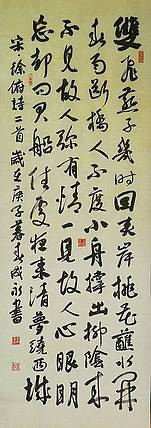 雙飛燕子幾時回夾岸桃花蘸水開
春雨斷橋人不度小舟撐出柳陰來
不見故人弥有情一見故人心眼明
忘却問君船住處夜來清夢繞西城
宋·徐俯詩二首歲在庚子暮春成永書